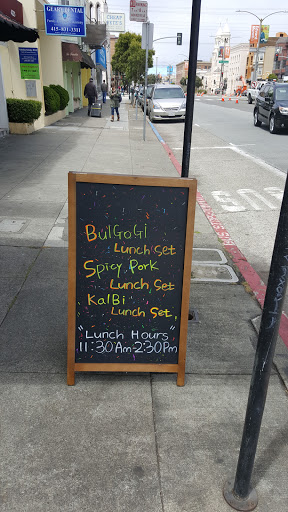 GEARY DENTAL
415-831-3311
CHEAP
BulGoGi
Lunch Set
Spicy Pork
Lunch Set
KalBi
Lunch Set,
"Lunch Hours"
11:30Am-2:30Pm
BUS